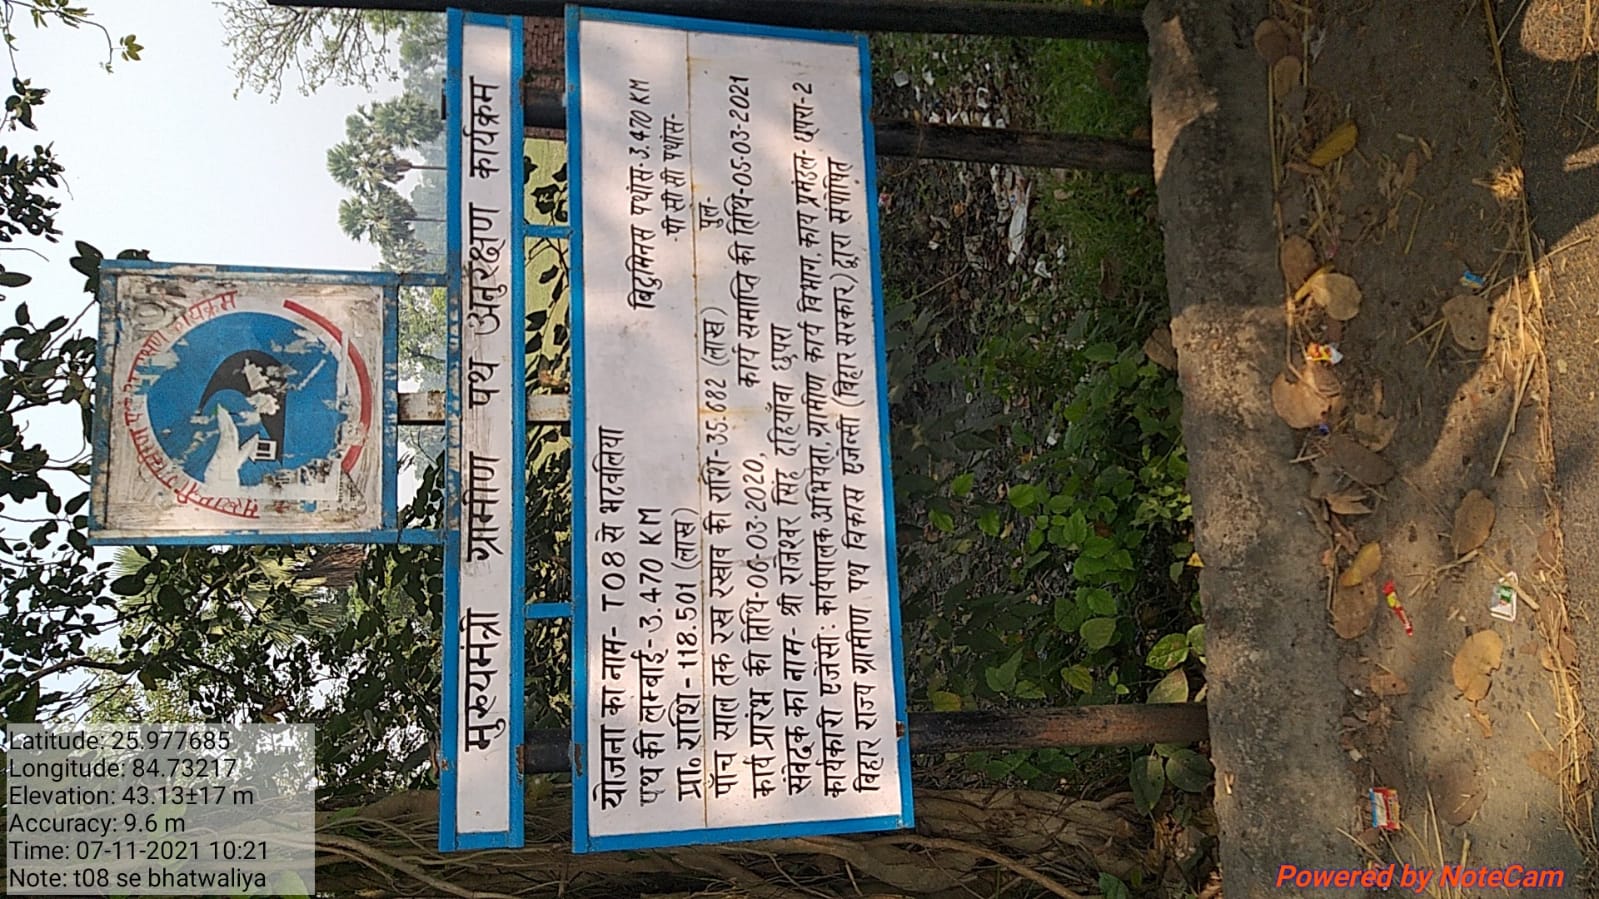 मुख्यमंत्री ग्रामीण पथ अनुरक्षण कार्यक्रम
योजना का नाम- T08 से भटवलिया
पथ की लम्बाई- 3.470 KM बिटुमिनस पथांस-3.470 KM
प्रा० राशि - 118.501 (लाख) पी सी सी पथांस-
पाँच साल तक रख रखाव की राशि-35.682 (लाख) पुल-
कार्य प्रारंभ की तिथि-06-03-2020, कार्य समाप्ति की तिथि-05-03-2021
संवेदक का नाम- श्री राजेश्वर सिंह दहियाँवा छपरा
कार्यकारी एजेंसी: कार्यपालक अभियंता, ग्रामीण कार्य विभाग, कार्य प्रमंडल- छपरा-2
बिहार राज्य ग्रामीण पथ विकास एजेन्सी (बिहार सरकार) द्वारा संपोषित
Latitude: 25.977685
Longitude: 84.73217
Elevation: 43.13±17 m
Accuracy: 9.6 m
Time: 07-11-2021 10:21
Note: t08 se bhatwaliya
Powered by NoteCam